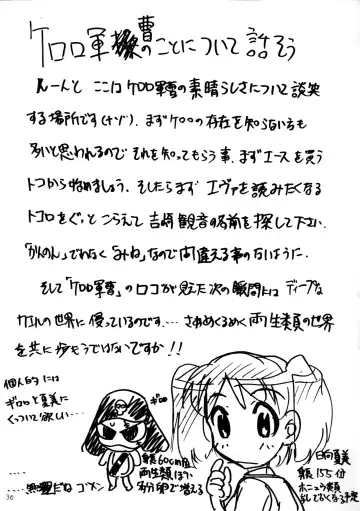 ケロロ軍曹のことについて話そう
んーんと ここはケロロ軍曹の素晴らしさについて談笑
する場所です(ナゾ)。まずケロロの存在を知らない方も
多いと思われるので それを知ってもらう事、まずエースを買う
トコから始めましょう。そしたらまず エヴァを読みたくなる
トコロをぐっと こらえて 吉崎観音の名前を探して下さい。
「かんのん」でなく「みね」なので間違える事のないように。
そして「ケロロ軍曹」のロゴが見えた次の瞬間には ディープな
カエルの世界に浸っているのです…. さあめくるめく両生類の世界
を共に歩もうではないですか!!
個人的には
ギロロと夏美に
くっついて欲しい….
….無理だねゴメン
ギロロ
身長60cm位
両生類ぽい
多分卵で増える
日向夏美
身長155位
ホニュウ類
予定
36